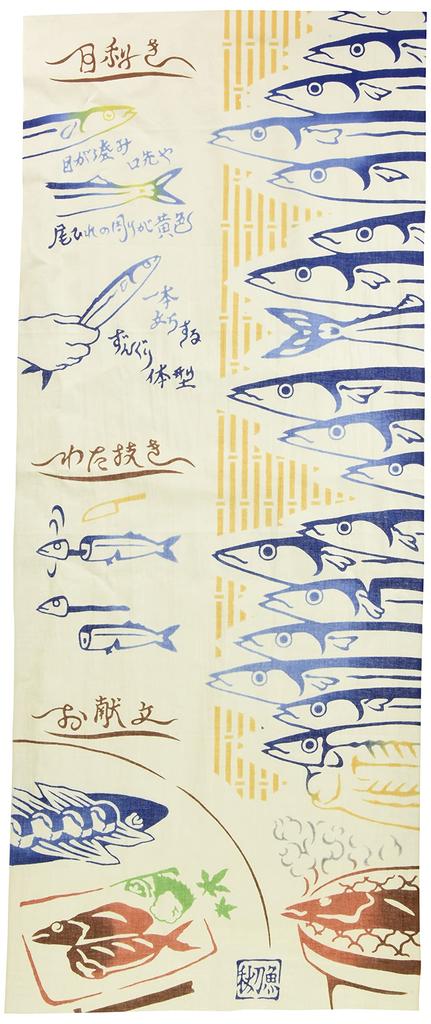 目利き
目が澄み
口先や
尾ひれの周りが黄色
一本
立ちする
ずんぐり
体型
わた抜き
お献立
秋刀魚